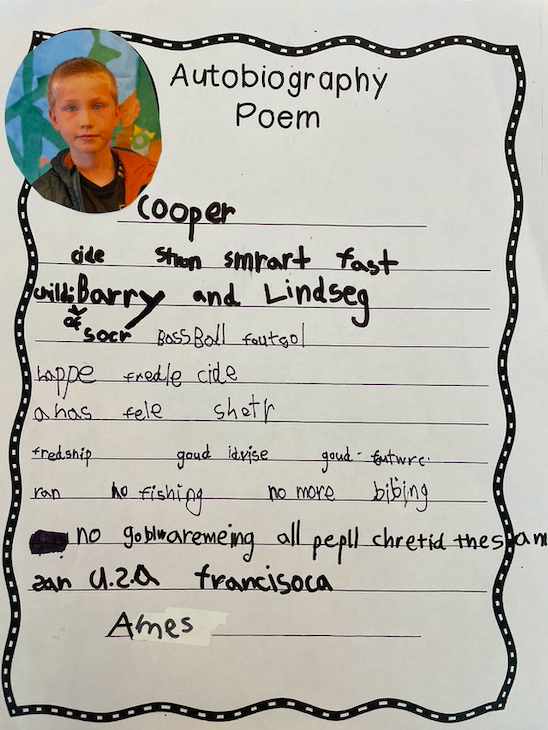 Autobiography
Poem
Cooper
cide stron smrart fast
childi of Barry and Lindseg
socr BassBoll foutgol
happe fredle cide
a has fele shetr
fredship goud idvise goud - future.
ran no fishing no more bibing
no goblwaremeing all pepll chretid thes am
san U.S.A francisoca
Ames